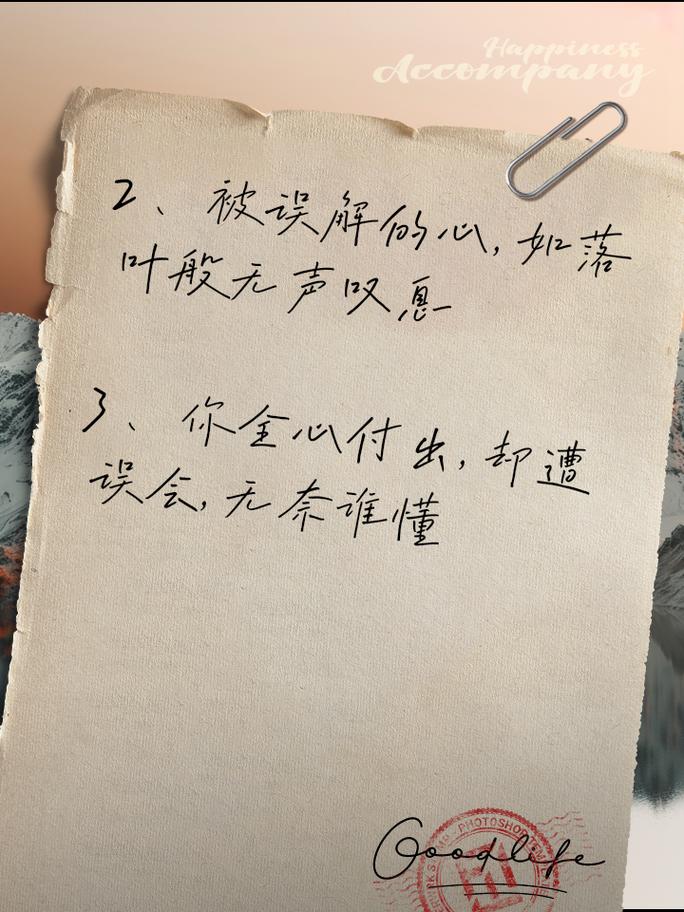 Happiness
Accompany
2、被误解的心，如落
叶般无声叹息
3、你全心付出，却遭
误会，无奈谁懂
PHOTOSHOP
Goodlife